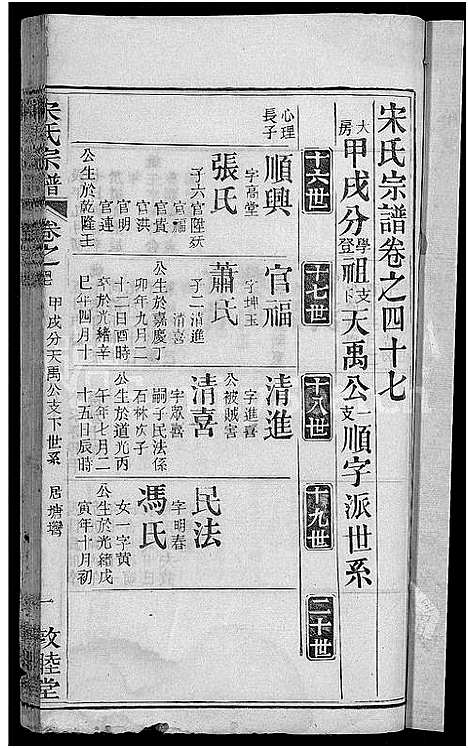 宋氏宗譜卷之四十七
大房甲戌分學登祖支下天禹公一支順字派世系
十六世
十七世
十八世
十九世
二十世
心理長子
順興
字高堂
張氏
子六官陞
官福
官貴
官洪
官明
官連
公生於乾隆壬
官福
字坤玉
蕭氏
子二清進
清喜
公生於嘉慶丁
卯年九月二
十二日酉時
卒於光緒辛
巳年四月十
清進
字進喜
公被賊害
清喜
字眾喜
嗣子民法係
石林次子
公生於道光丙
午年七月二
十五日辰時
民法
字明春
馮氏
女一字黃
公生於光緒戊
寅年十月初
宋氏宗譜
卷之
甲戌分天禹公支下世系
居塘灣
一
敦睦堂